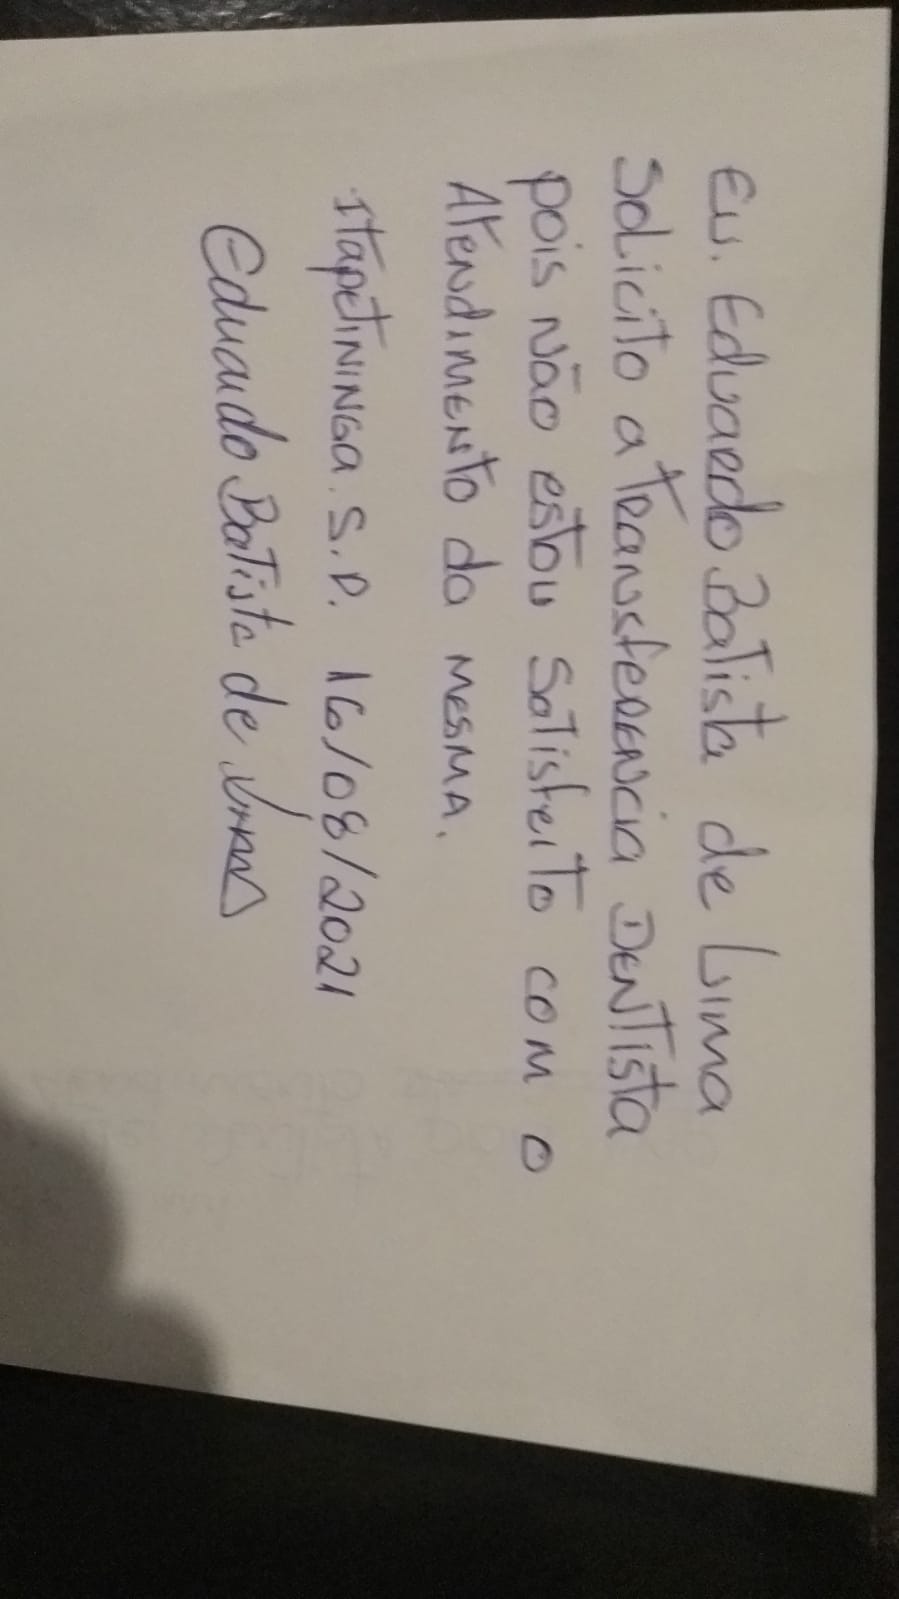 Eu. Eduardo Batista de Lima
Solicito a transferencia Dentista
pois não estou satisfeito com o
Atendimento da mesma.
Itapetininga. S.P. 16/08/2021
Eduardo Batista de Lima